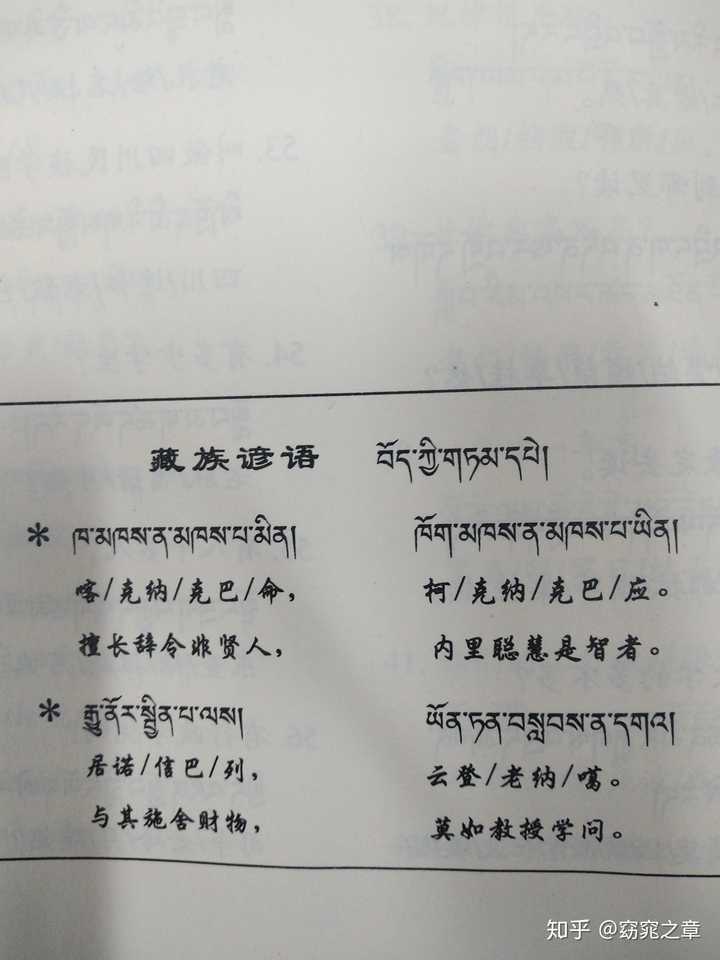 藏族谚语 བོད་ཀྱི་གཏམ་དཔེ།
* ཁ་མཁས་ན་མཁས་པ་མིན། ཁོག་མཁས་ན་མཁས་པ་ཡིན།
喀/克纳/克巴/命, 柯/克纳/克巴/应。
擅长辞令非贤人, 内里聪慧是智者。
* རྒྱུ་ནོར་སྦྱིན་པ་ལས། ཡོན་ཏན་བསླབས་ན་དགའ།
居诺/信巴/列, 云登/老纳/噶。
与其施舍财物, 莫如教授学问。
知乎 @窈窕之章